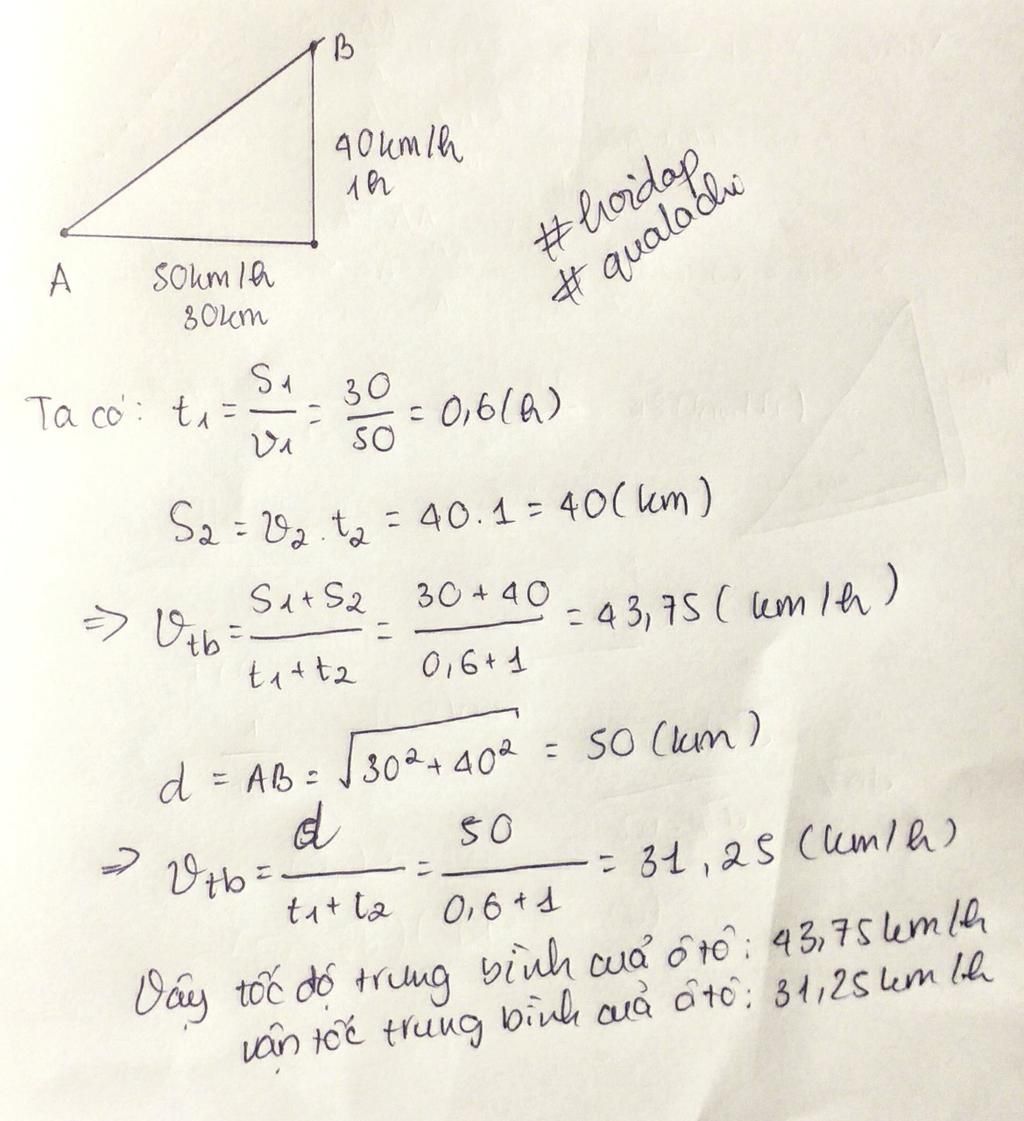 B
40km/h
1h
#hoidap
#qualachi
A
50km/h
30km
Ta có: t₁ = S₁/v₁ = 30/50 = 0,6(h)
S₂ = v₂ . t₂ = 40.1 = 40(km)
=> v_tb = (S₁+S₂)/(t₁+t₂) = (30+40)/(0,6+1) = 43,75 (km/h)
d = AB = √(30²+40²) = 50 (km)
=> v_tb = d/(t₁+t₂) = 50/(0,6+1) = 31,25 (km/h)
Vậy tốc độ trung bình cuả ôtô: 43,75km/h
vận tốc trung bình cuả ôtô: 31,25km/h